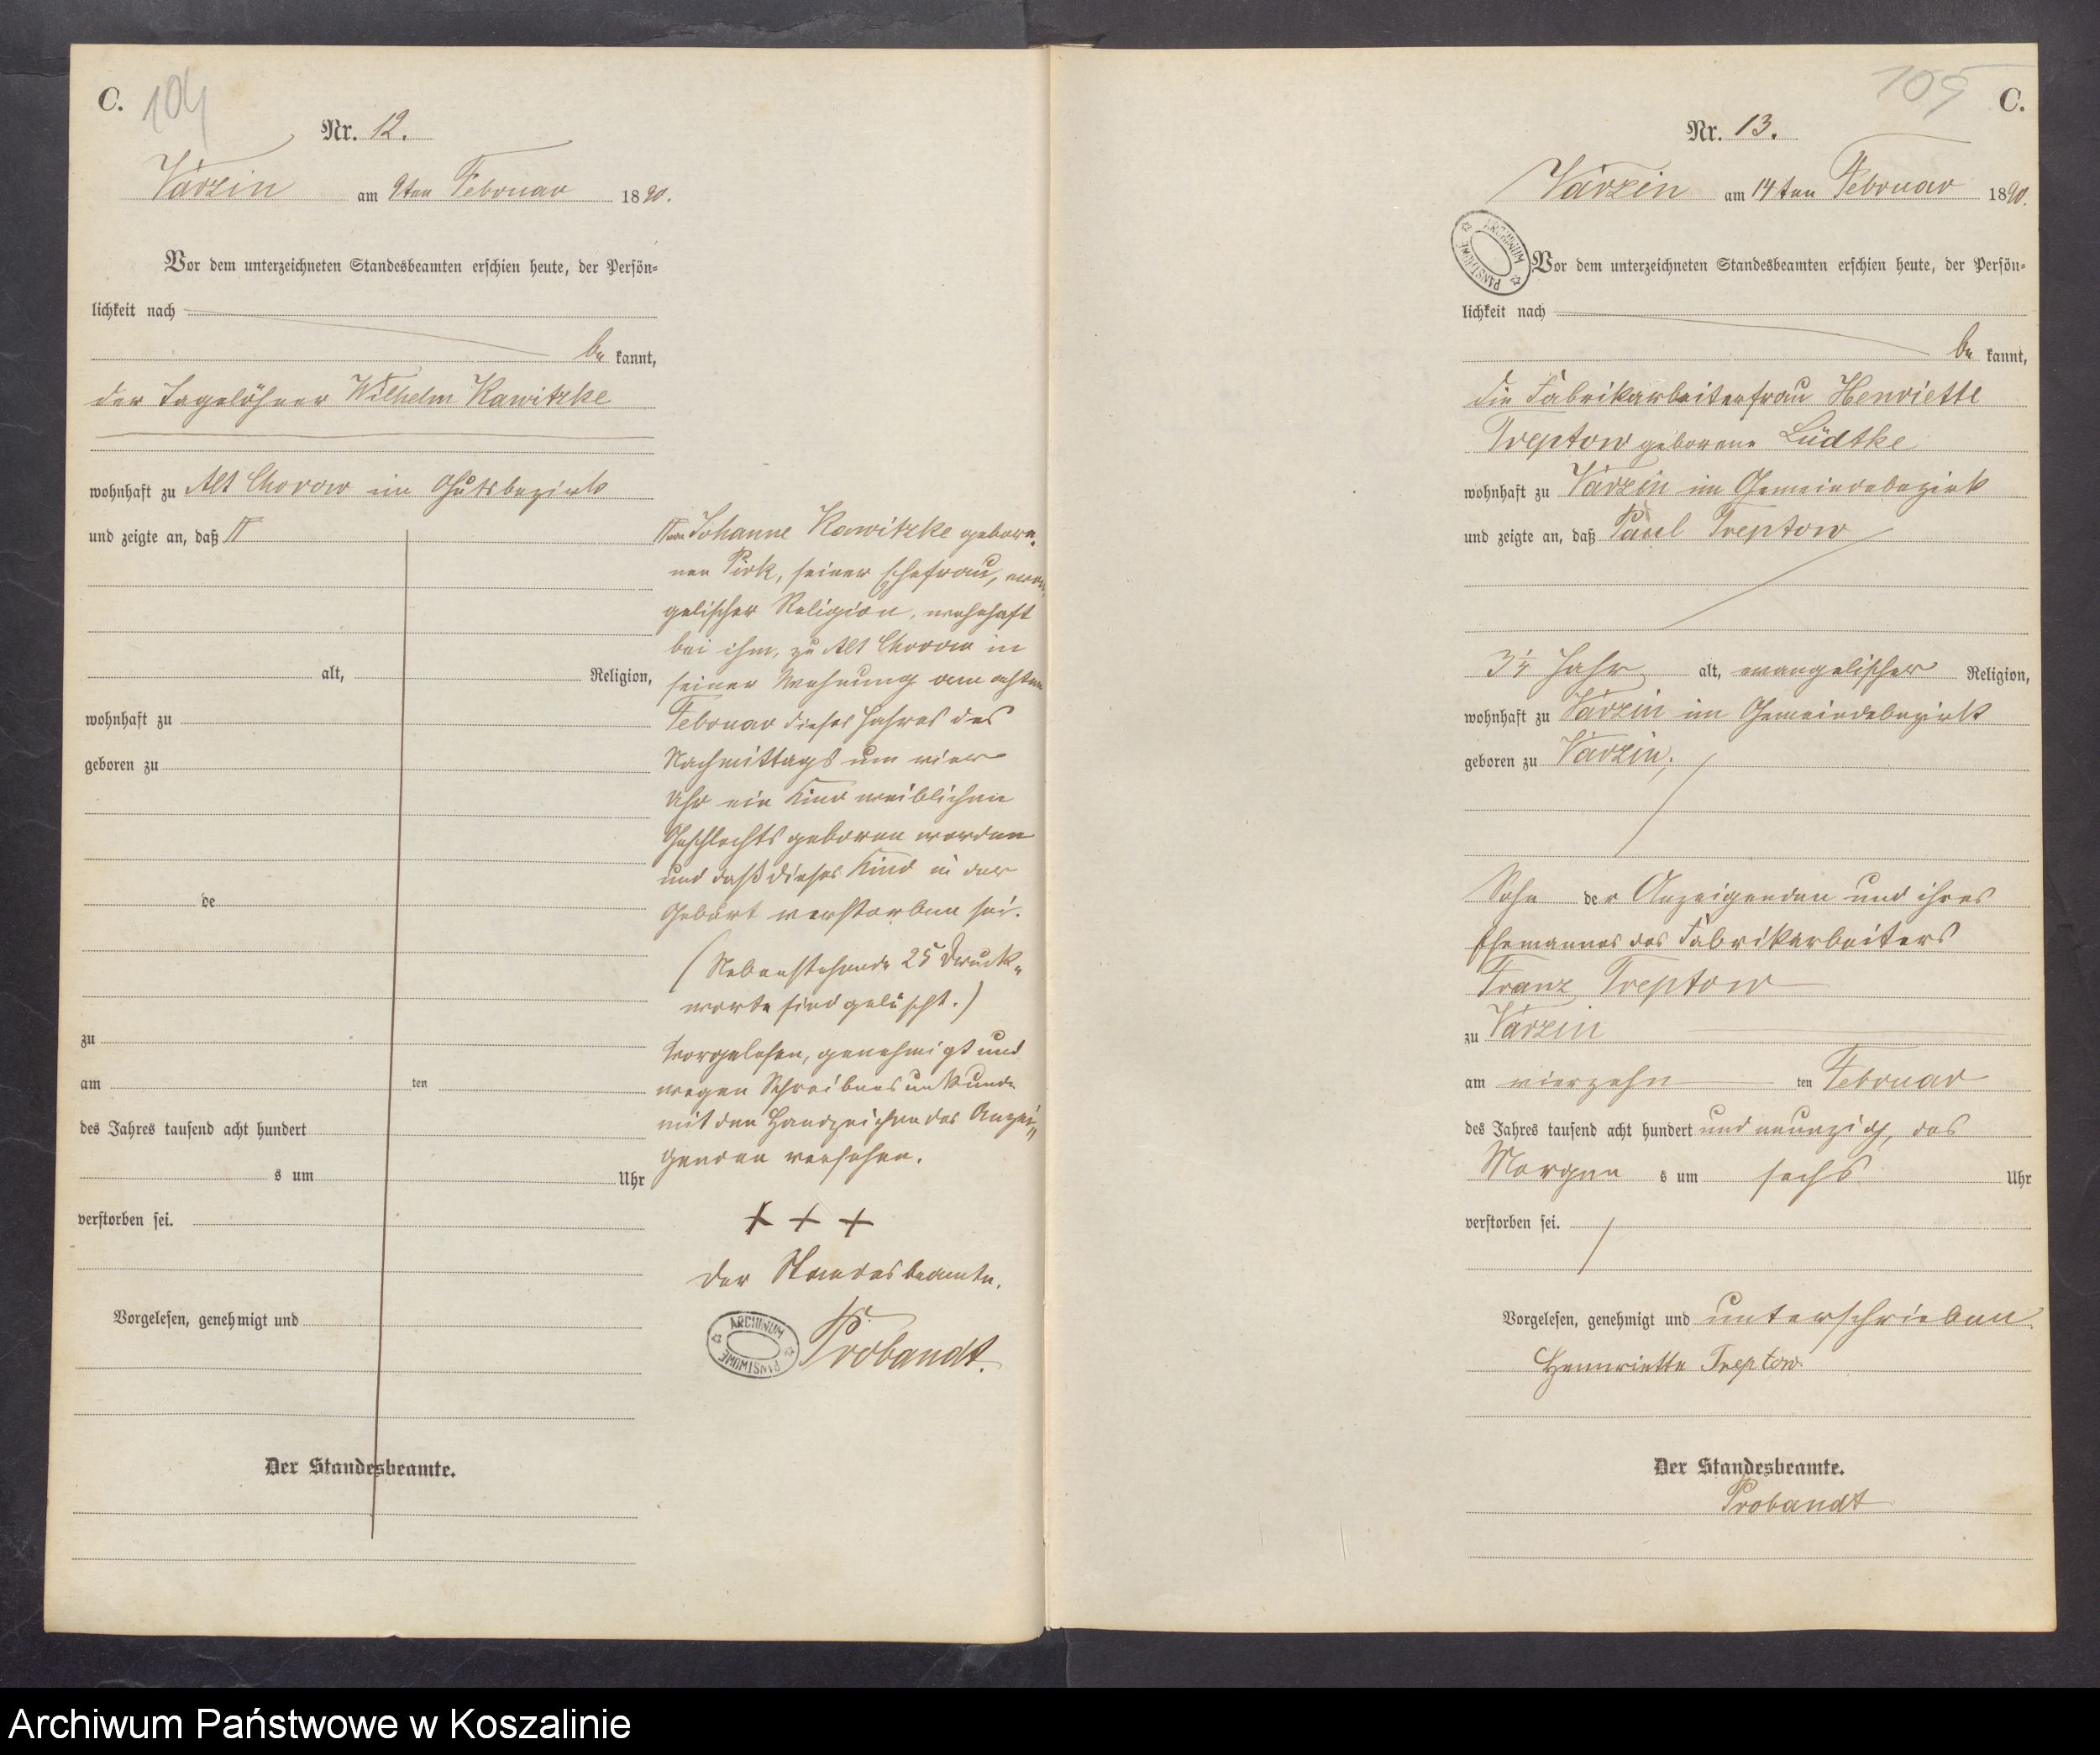 C.
104
Nr. 12.
Varzin am 9ten Februar 1890.
Vor dem unterzeichneten Standesbeamten erschien heute, der Persön-
lichkeit nach
be kannt,
der Tagelöhner Wilhelm Kawitzke
wohnhaft zu Alt Chorow im Gutsbezirk
und zeigte an, daß
alt, Religion,
wohnhaft zu
geboren zu
de
zu
am ten
des Jahres tausend acht hundert
s um Uhr
verstorben sei.
Vorgelesen, genehmigt und
Der Standesbeamte.
von Johanne Kawitzke gebore-
nen Pirk, seiner Ehefrau, evan-
gelischer Religion, wohnhaft
bei ihm, zu Alt Chorow in
seiner Wohnung am achten
Februar dieses Jahres des
Nachmittags um vier
Uhr ein Kind weiblichen
Geschlechts geboren worden
und daß dieses Kind in der
Geburt verstorben sei.
(Nebenstehende 25 Druck-
worte sind gelöscht.)
Vorgelesen, genehmigt und
wegen Schreibensunkunde
mit den Handzeichen des Anzei-
genden versehen.
+ + +
Der Standesbeamte.
ARCHIWUM PAŃSTWOWE
Probandt.
105
C.
Nr. 13.
Varzin am 14ten Februar 1890.
ARCHIWUM PAŃSTWOWE
Vor dem unterzeichneten Standesbeamten erschien heute, der Persön-
lichkeit nach
be kannt,
die Fabrikarbeiterfrau Henriette
Treptow geborene Lüdtke
wohnhaft zu Varzin im Gemeindebezirk
und zeigte an, daß Paul Treptow
3¼ Jahr alt, evangelischer Religion,
wohnhaft zu Varzin im Gemeindebezirk
geboren zu Varzin,
Sohn der Anzeigenden und ihres
Ehemannes des Fabrikarbeiters
Franz Treptow
zu Varzin
am vierzehn ten Februar
des Jahres tausend acht hundert und neunzig, des
Morgen s um sechs Uhr
verstorben sei.
Vorgelesen, genehmigt und unterschrieben.
Hennriette Treptow
Der Standesbeamte.
Probandt
Archiwum Państwowe w Koszalinie